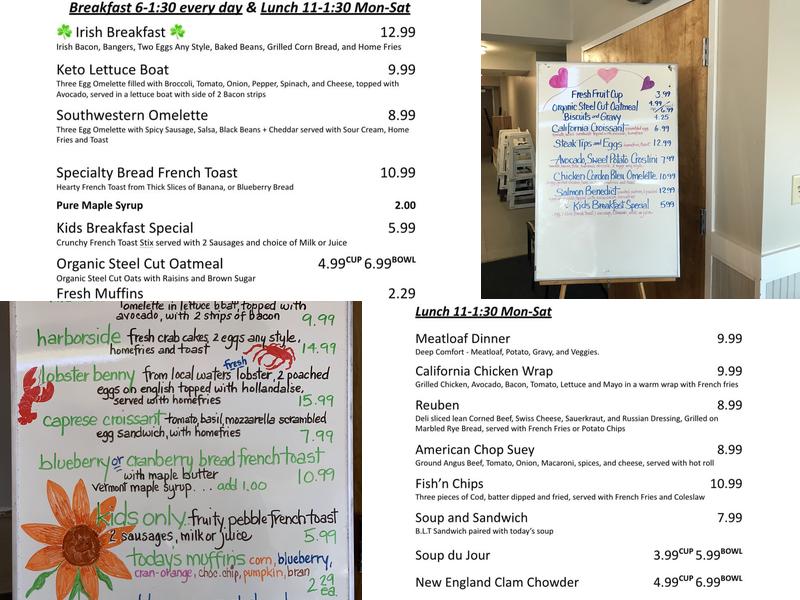 Breakfast 6-1:30 every day & Lunch 11-1:30 Mon-Sat
Irish Breakfast 12.99
Irish Bacon, Bangers, Two Eggs Any Style, Baked Beans, Grilled Corn Bread, and Home Fries
Keto Lettuce Boat 9.99
Three Egg Omelette filled with Broccoli, Tomato, Onion, Pepper, Spinach, and Cheese, topped with
Avocado, served in a lettuce boat with side of 2 Bacon strips
Southwestern Omelette 8.99
Three Egg Omelette with Spicy Sausage, Salsa, Black Beans + Cheddar served with Sour Cream, Home
Fries and Toast
Specialty Bread French Toast 10.99
Hearty French Toast from Thick Slices of Banana, or Blueberry Bread
Pure Maple Syrup 2.00
Kids Breakfast Special 5.99
Crunchy French Toast Stix served with 2 Sausages and choice of Milk or Juice
Organic Steel Cut Oatmeal 4.99CUP 6.99BOWL
Organic Steel Cut Oats with Raisins and Brown Sugar
Fresh Muffins 2.29
Fresh Fruit Cup 3.99
Organic Steel Cut Oatmeal 4.99 6.99
Biscuits and Gravy 4.25
California Croissant 6.99
Steak Tips and Eggs 12.99
Avocado, Sweet Potato Crostini 7.99
Chicken Cordon Bleu Omelette 10.99
Salmon Benedict 12.99
Kids Breakfast Special 5.99
omelette in lettuce boat, topped with
avocado, with 2 strips of bacon 9.99
harborside fresh crab cakes, 2 eggs any style,
homefries and toast 14.99
fresh
lobster benny from local waters lobster, 2 poached
eggs on english topped with hollandaise,
served with homefries 15.99
caprese croissant tomato, basil, mozzarella scrambled
egg sandwich, with homefries 7.99
blueberry or cranberry bread french toast
with maple butter 10.99
vermont maple syrup... add 1.00
kids only fruity pebble french toast
2 sausages, milk or juice 5.99
todays muffins corn, blueberry,
cran-orange, choc.chip, pumpkin, bran
2.29 ea.
Lunch 11-1:30 Mon-Sat
Meatloaf Dinner 9.99
Deep Comfort - Meatloaf, Potato, Gravy, and Veggies.
California Chicken Wrap 9.99
Grilled Chicken, Avocado, Bacon, Tomato, Lettuce and Mayo in a warm wrap with French fries
Reuben 8.99
Deli sliced lean Corned Beef, Swiss Cheese, Sauerkraut, and Russian Dressing, Grilled on
Marbled Rye Bread, served with French Fries or Potato Chips
American Chop Suey 8.99
Ground Angus Beef, Tomato, Onion, Macaroni, spices, and cheese, served with hot roll
Fish'n Chips 10.99
Three pieces of Cod, batter dipped and fried, served with French Fries and Coleslaw
Soup and Sandwich 7.99
B.L.T Sandwich paired with today's soup
Soup du Jour 3.99CUP 5.99BOWL
New England Clam Chowder 4.99CUP 6.99BOWL